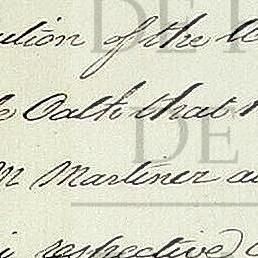 ution of the
Oath that
M Martinez a
respective